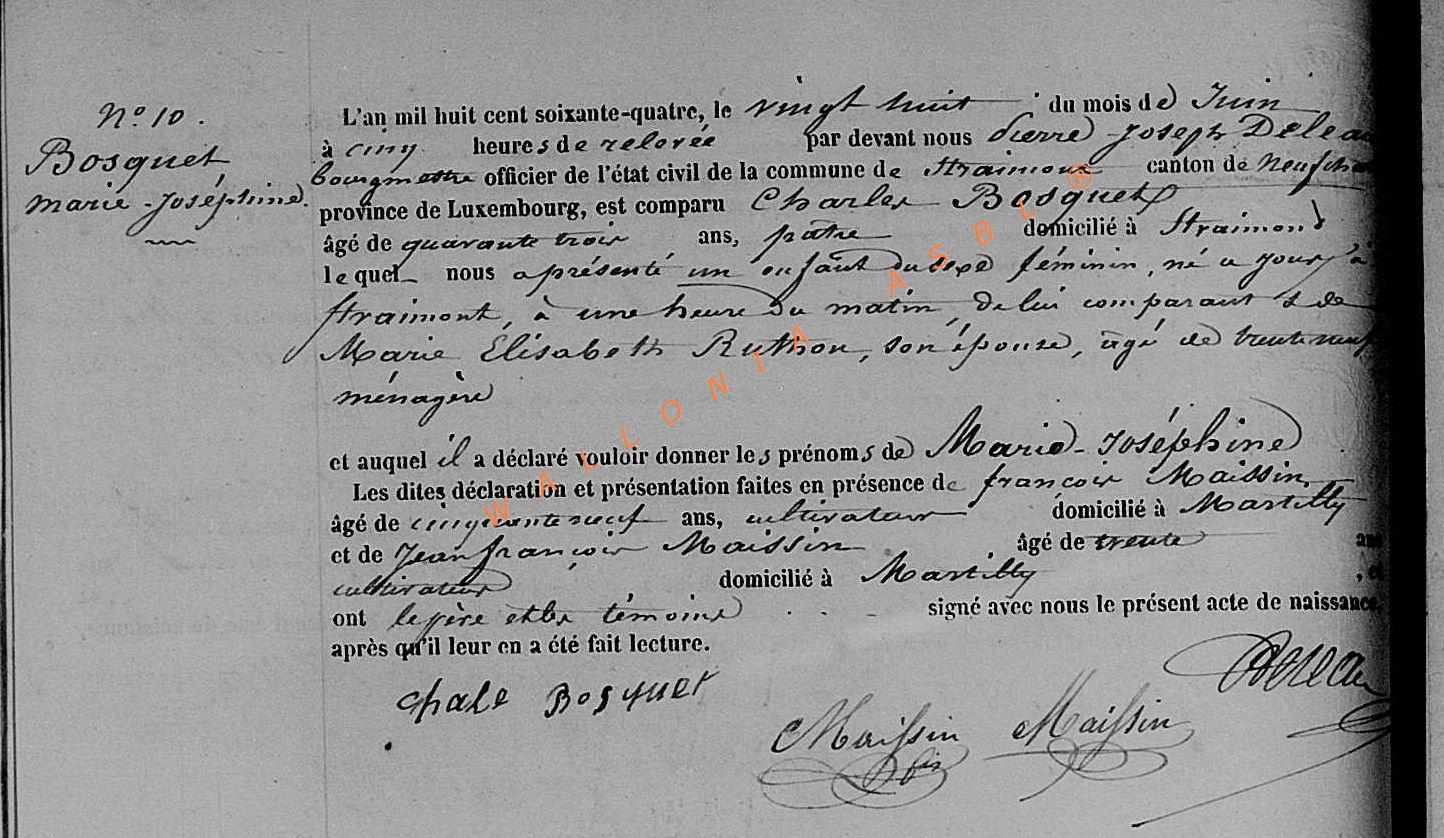 N° 10.
Bosquet
marie-Joséphine.
L'an mil huit cent soixante-quatre, le vingt huit du mois de Juin
à cinq heures de relevée par devant nous Pierre Joseph Deleau
bourgmestre officier de l'état civil de la commune de Straimont canton de Neufchâ
province de Luxembourg, est comparu Charles Bosquet
âgé de quarante trois ans, pâtre domicilié à Straimont
lequel nous a présenté un enfant du sexe féminin, né a jour, à
Straimont, à une heure du matin, de lui comparant & de
Marie Elisabeth Ruthon, son épouse, âgé de trente neuf
ménagère
et auquel il a déclaré vouloir donner les prénoms de Marie-Joséphine
Les dites déclaration et présentation faites en présence de françois Maissin,
âgé de cinquante neuf ans, cultivateur domicilié à Martilly
et de Jean françois Maissin âgé de trente ans
cultivateur domicilié à Martilly , et
ont le père et les témoins signé avec nous le présent acte de naissance,
après qu'il leur en a été fait lecture.
Chale Bosquet
Maissin fils Maissin
Deleau
WALLONIA ASBL ®